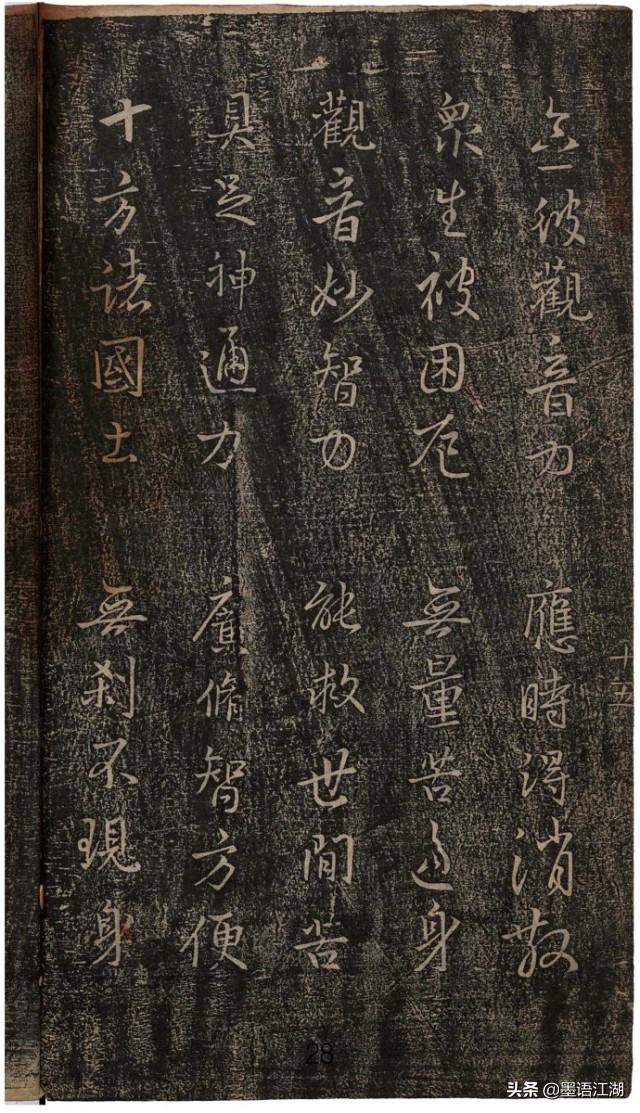 念彼觀音力 應時得消散
衆生被困厄 無量苦逼身
觀音妙智力 能救世間苦
具足神通力 廣脩智方便
十方諸國土 無刹不現身
十五
28
头条 @墨语江湖